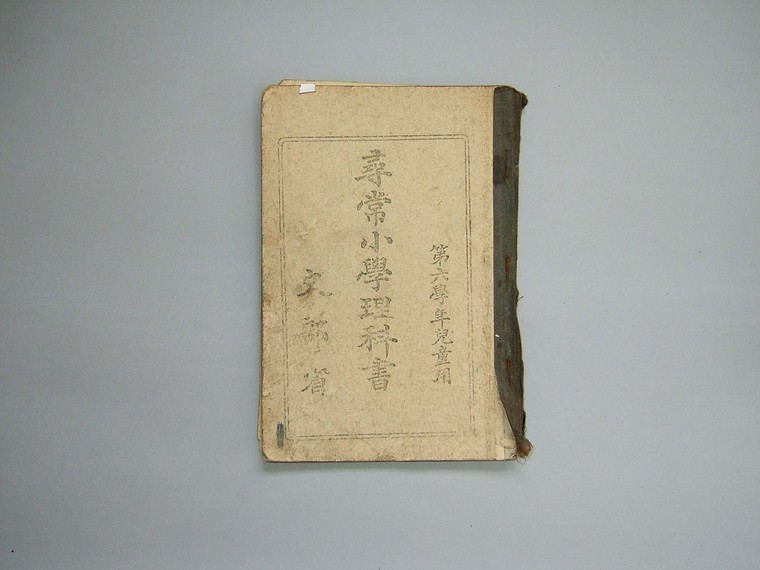 第六學年兒童用
尋常小學理科書
文部省